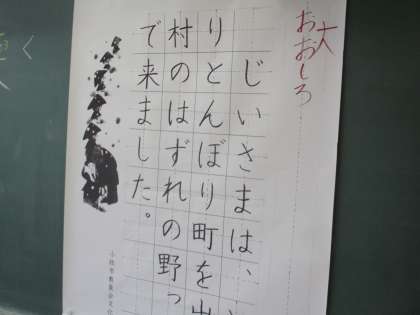 大
おおしろ
じいさまは、
りとんぼり町を出
村のはずれの野っ
で来ました。